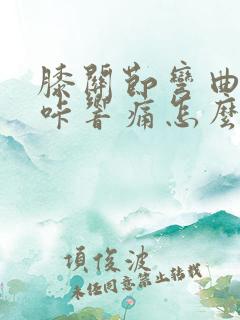 膝關節彎曲
咔響痛怎麼
項俊波
未經同意禁止轉載